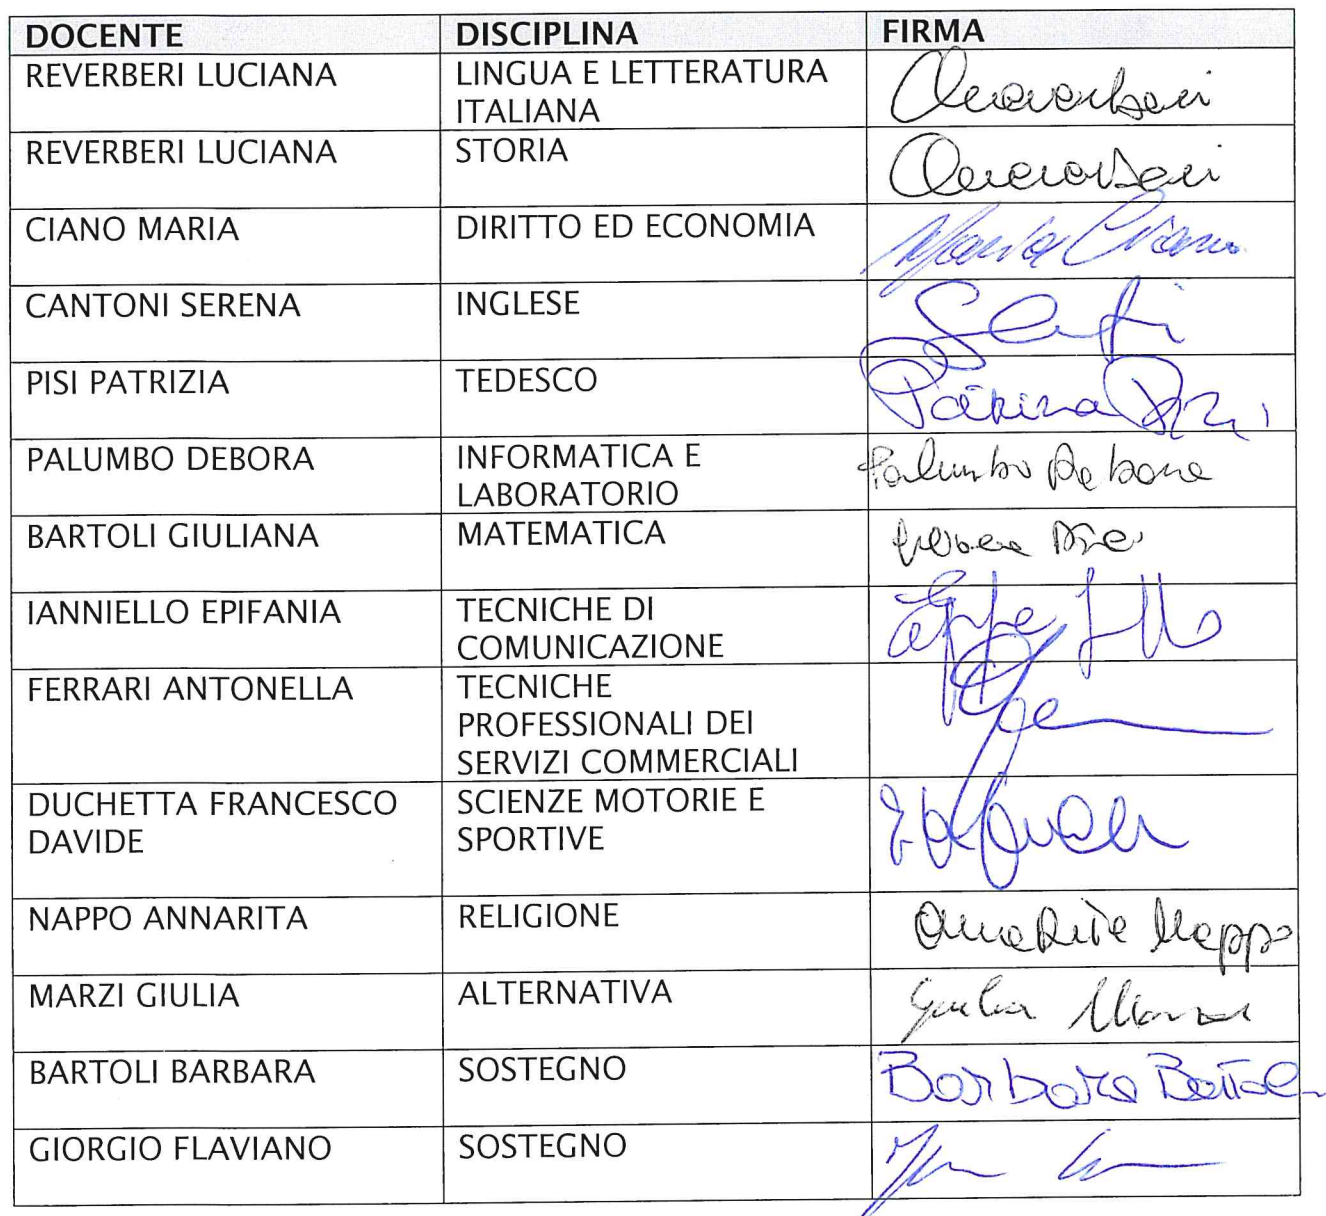 DOCENTE DISCIPLINA FIRMA
REVERBERI LUCIANA LINGUA E LETTERATURA
ITALIANA
REVERBERI LUCIANA STORIA
CIANO MARIA DIRITTO ED ECONOMIA Maria Ciano
CANTONI SERENA INGLESE
PISI PATRIZIA TEDESCO Patrizia Pisi
PALUMBO DEBORA INFORMATICA E Palumbo Debora
LABORATORIO
BARTOLI GIULIANA MATEMATICA
IANNIELLO EPIFANIA TECNICHE DI
COMUNICAZIONE
FERRARI ANTONELLA TECNICHE
PROFESSIONALI DEI
SERVIZI COMMERCIALI
DUCHETTA FRANCESCO SCIENZE MOTORIE E
DAVIDE SPORTIVE
NAPPO ANNARITA RELIGIONE Annarita Nappo
MARZI GIULIA ALTERNATIVA Giulia Marzi
BARTOLI BARBARA SOSTEGNO Barbara Bartoli
GIORGIO FLAVIANO SOSTEGNO